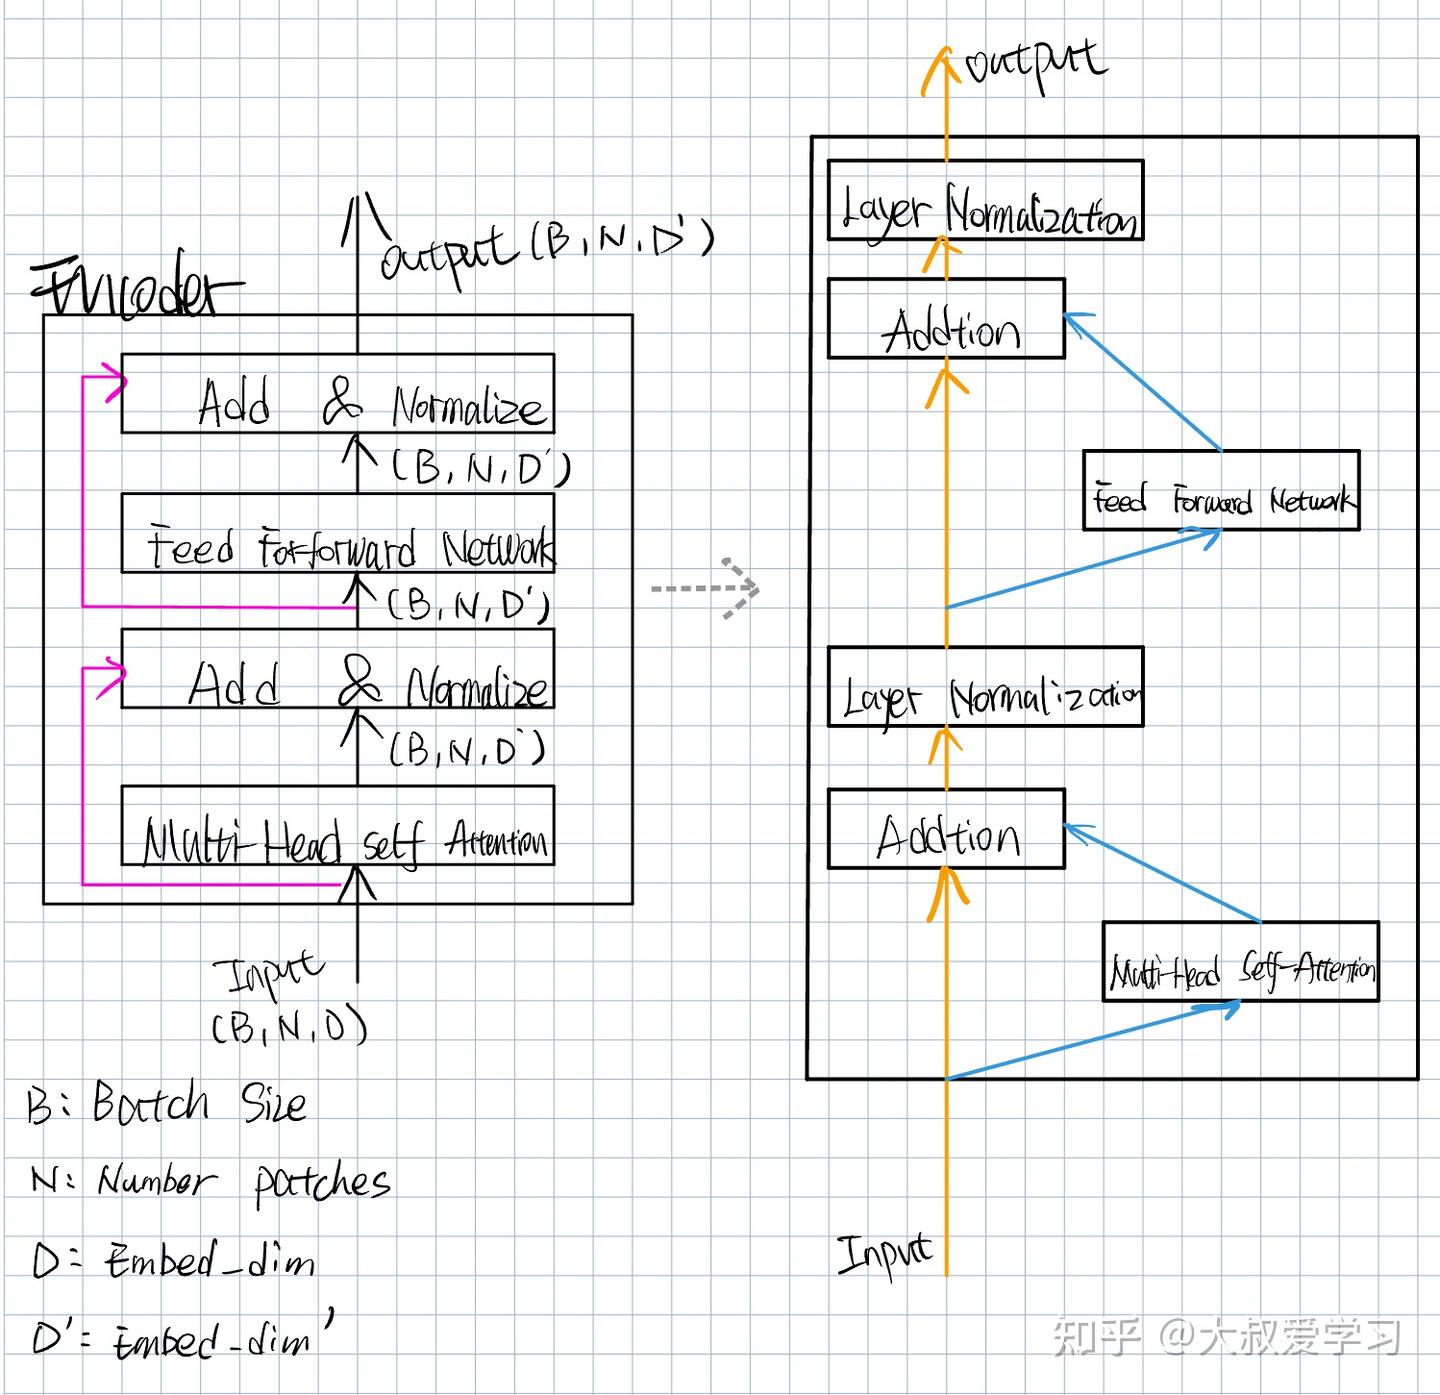 output (B, N, D')
Encoder
Add & Normalize
(B, N, D')
Feed Forforward Network
(B, N, D')
Add & Normalize
(B, N, D')
Multi-Head self Attention
Input
(B, N, D)
B: Batch Size
N: Number patches
D: Embed_dim
D': Embed_dim'
output
Layer Normalization
Addtion
Feed Forward Network
Layer Normalization
Addtion
Multi-Head Self-Attention
Input
知乎 @大叔爱学习